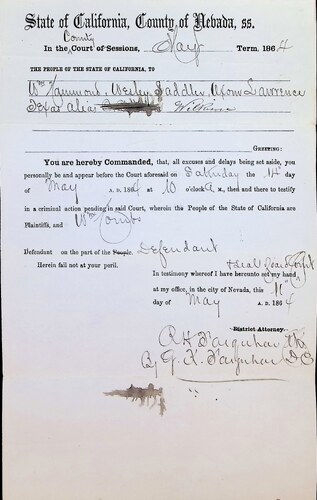 State of California, County of Nevada, ss.
County
In the Court of Sessions, May Term, 1864
THE PEOPLE OF THE STATE OF CALIFORNIA, TO
Wm Hammond, Wesley Saddler, Lawrence
Texas alias Wilkins
GREETING:
You are hereby Commanded, that, all excuses and delays being set aside, you
personally be and appear before the Court aforesaid on Saturday the 14 day
of May A. D. 1864 at 10 o'clock A M., then and there to testify
in a criminal action pending in said Court, wherein the People of the State of California are
Plaintiffs, and Wm Combs
Defendant on the part of the People. Defendant
Herein fail not at your peril.
In testimony whereof I have hereunto set my hand & seal of said Court
at my office, in the city of Nevada, this 11th
day of May A. D. 1864
District Attorney.
R H Farquhar Clk
By G. K. Farquhar D C